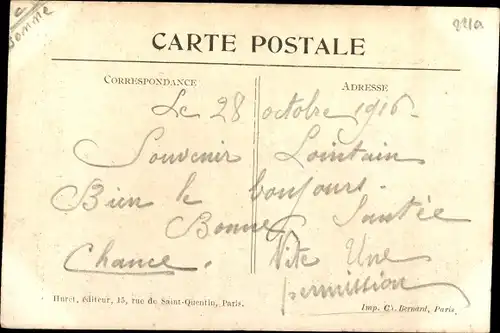 Somme
221a
CARTE POSTALE
CORRESPONDANCE
ADRESSE
Le 28 octobre 1916
Souvenir Lointain
Bien le bonjours.
Bonne Santée
Chance. Vite Une
permission
Huret, éditeur, 15, rue de Saint-Quentin, Paris.
Imp. Ch. Bernard, Paris.